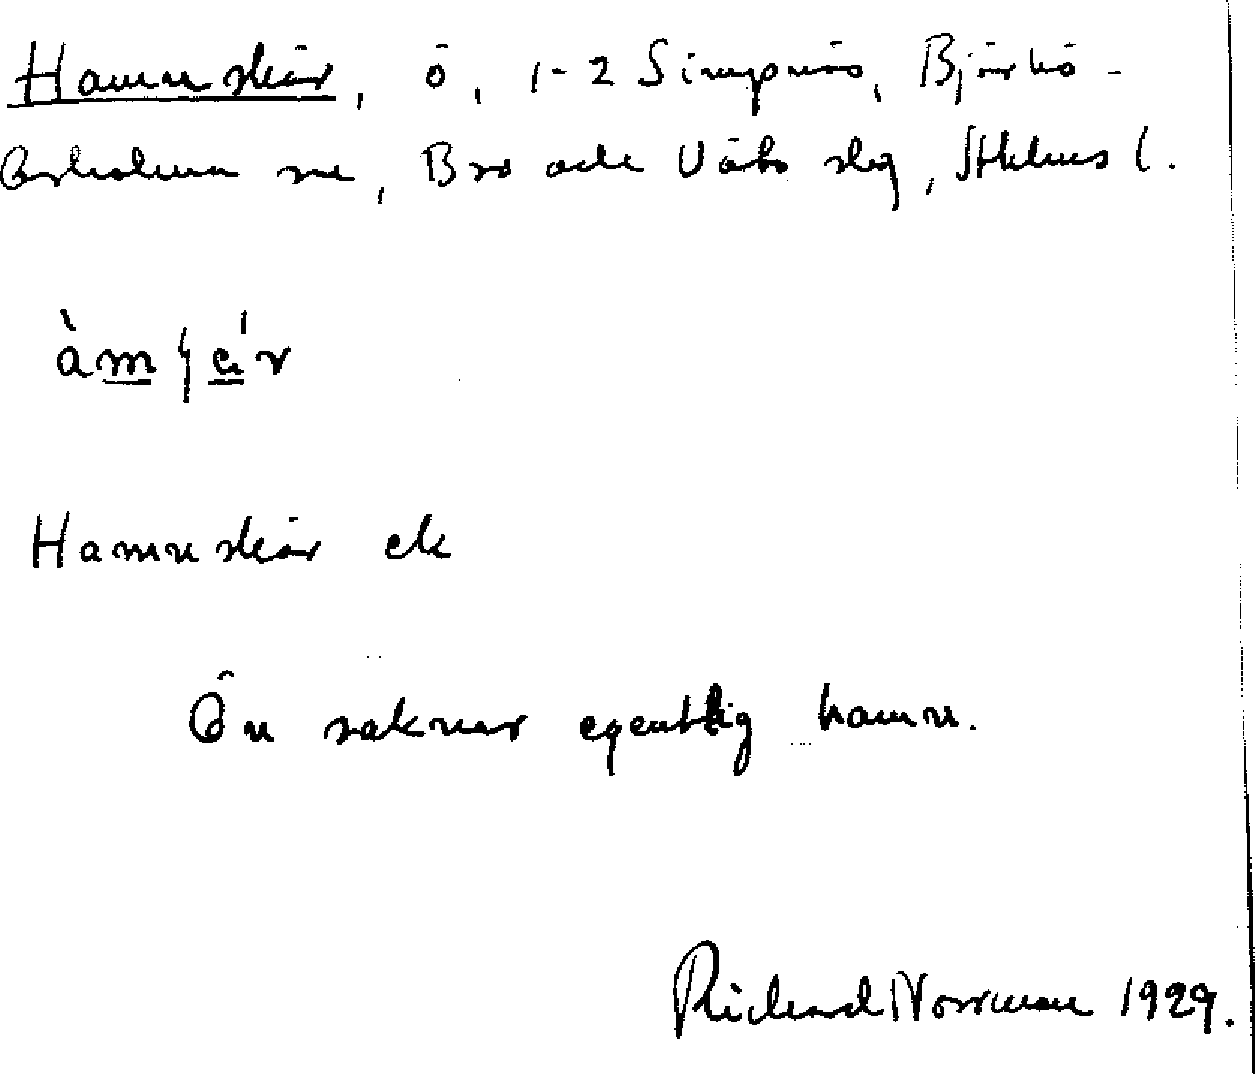 Hamnskär, ö, 1-2 Simpnäs, Björkö-
Arholma sn, Bro och Vätö slg, Sthlms l.
Hamnskär ek
Ön saknar egentlig hamn.
Richard Norrman 1929.